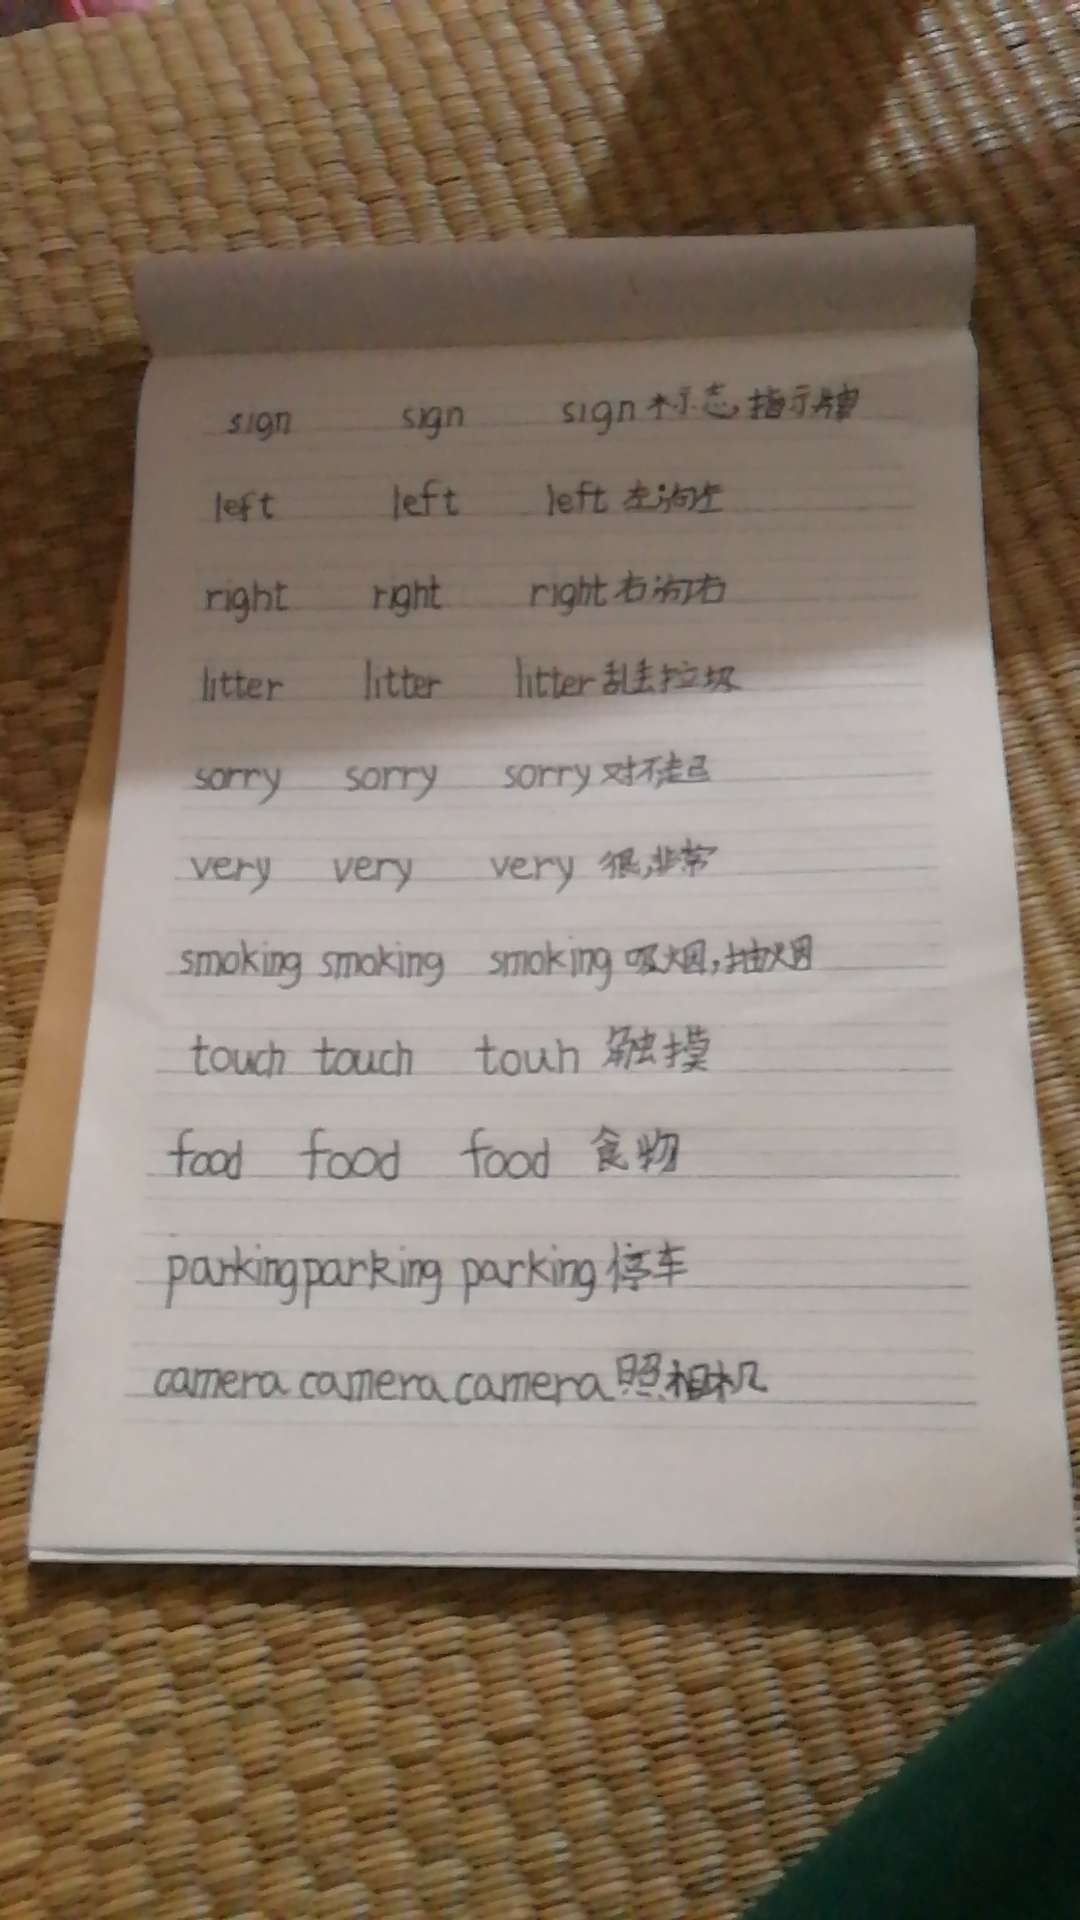 sign sign sign 标志,指示牌
left left left 左;向左
right right right 右;向右
litter litter litter 乱丢垃圾
sorry sorry sorry 对不起
very very very 很,非常
smoking smoking smoking 吸烟,抽烟
touch touch touh 触摸
food food food 食物
parking parking parking 停车
camera camera camera 照相机